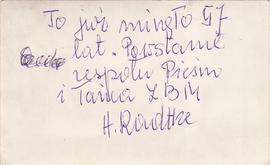 To już minęło 47
lat. Powstanie
zespołu Pieśni
i Tańca ZBM
H. Radtke